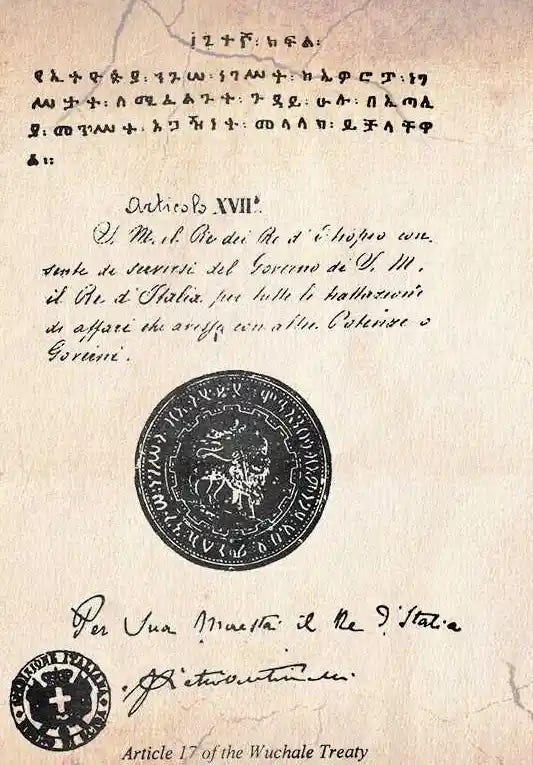 ፲፯ተኛ፡ክፍል፡
የኢትዮጵያ፡ንጉሠ፡ነገሥት፡ከኤዎሮፓ፡ነገ
ሥታት፡ለሚፈልጉት፡ጉዳይ፡ሁሉ፡በኢጣሊ
ያ፡መንግሥት፡አጋዥነት፡መላላክ፡ይቻላቸዋ
ል።
Articolo XVII°.
S. M. il Re dei Re d'Etiopia con-
sente di servirsi del Governo di S. M.
il Re d'Italia per tutte le trattazione
di affari che avesse con altre Potenze o
Governi.
Per Sua Maestà il Re d'Italia
Pietro Antonelli
Article 17 of the Wuchale Treaty